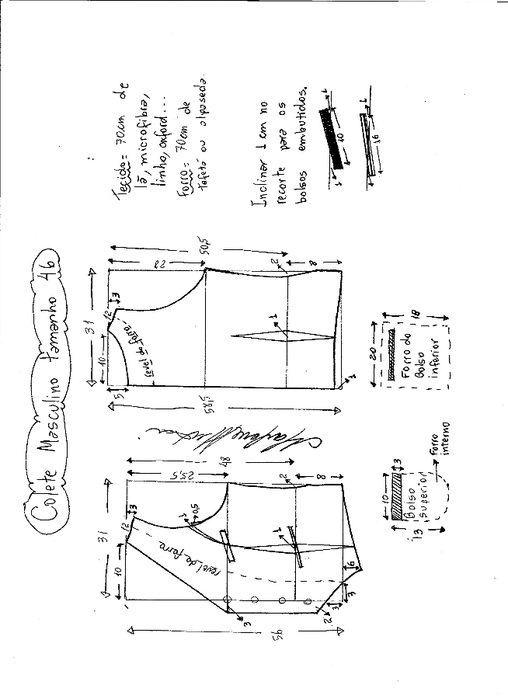 Colete Masculino tamanho 46
Tecido = 70cm de
lã, microfibra,
linho, oxford...
Forro = 70cm de
tafetá ou alpaseda.
Inclinar 1 cm no
recorte para os
bolsos embutidos.
1
10
1
1
16
1
31
10
12
3
5
28
50,5
2
8
58,5
1
1
revel de forro
20
18
Forro do
Bolso
inferior
31
10
12
3
25,5
48
2
8
0,5
1
1
revel de forro
6
3
3
2
3
56
10
3
13
Bolso
superior
Forro
interno